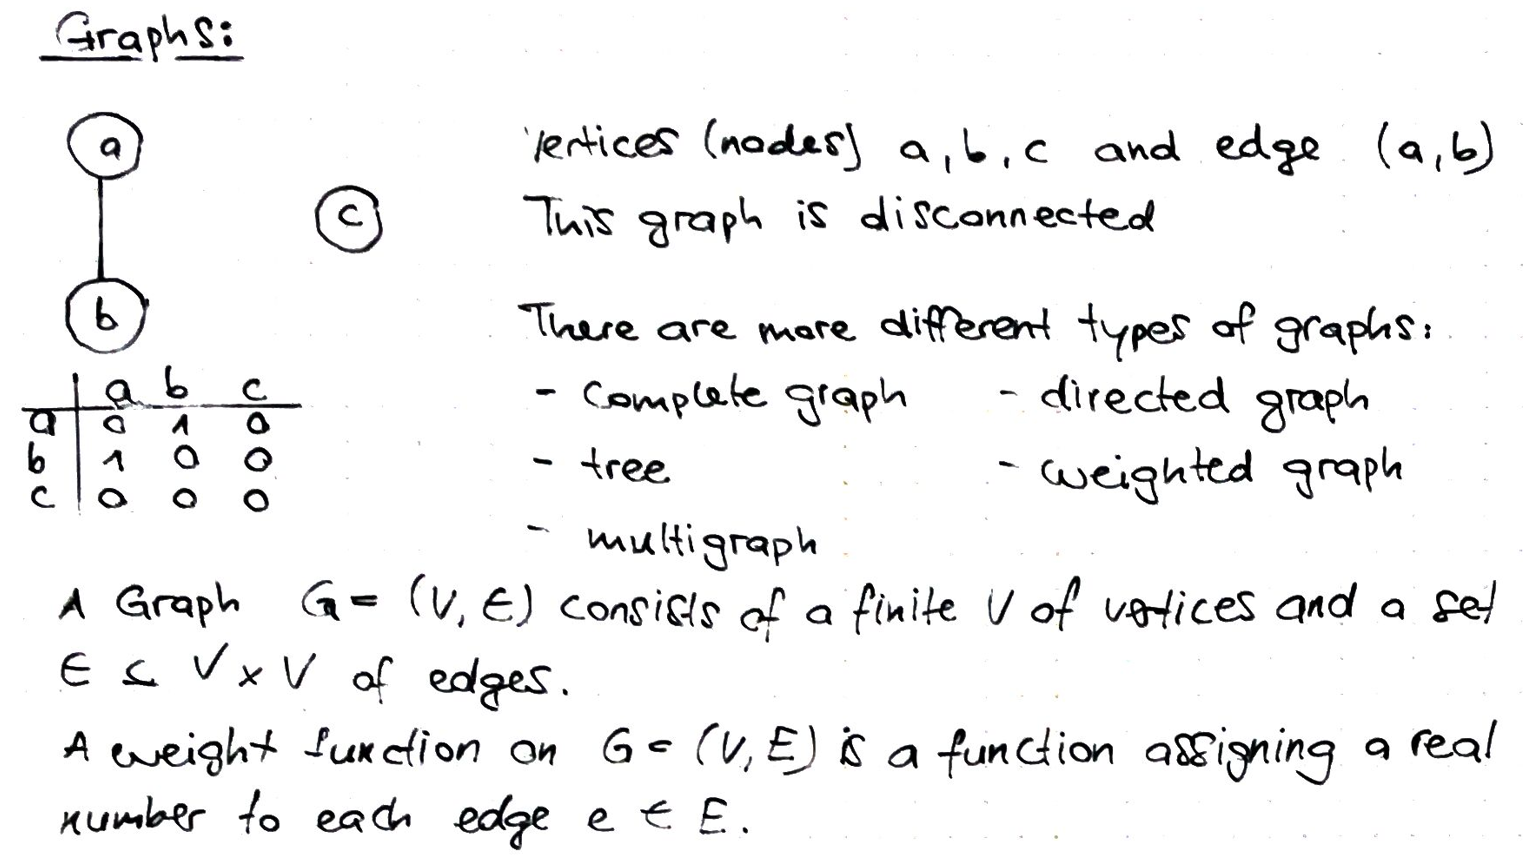 Graphs:
a
c
b
Vertices (nodes) a, b, c and edge (a, b)
This graph is disconnected
There are more different types of graphs:
- complete graph - directed graph
- tree - weighted graph
- multigraph
a b c
a 0 1 0
b 1 0 0
c 0 0 0
A Graph G = (V, E) consists of a finite V of vertices and a set
E ⊆ V x V of edges.
A weight function on G = (V, E) is a function assigning a real
number to each edge e ∈ E.